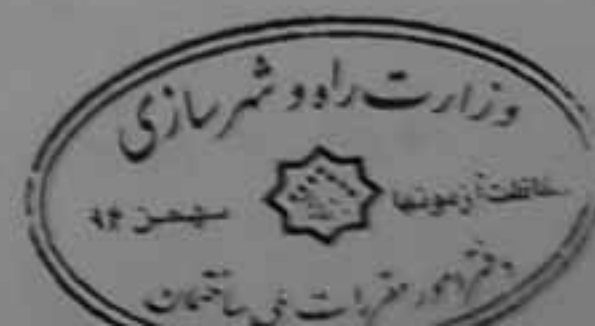 وزارت راه و شهرسازی
حفاظت آزمونها بهمن ۹۴
دفتر امور مقررات ملی ساختمان